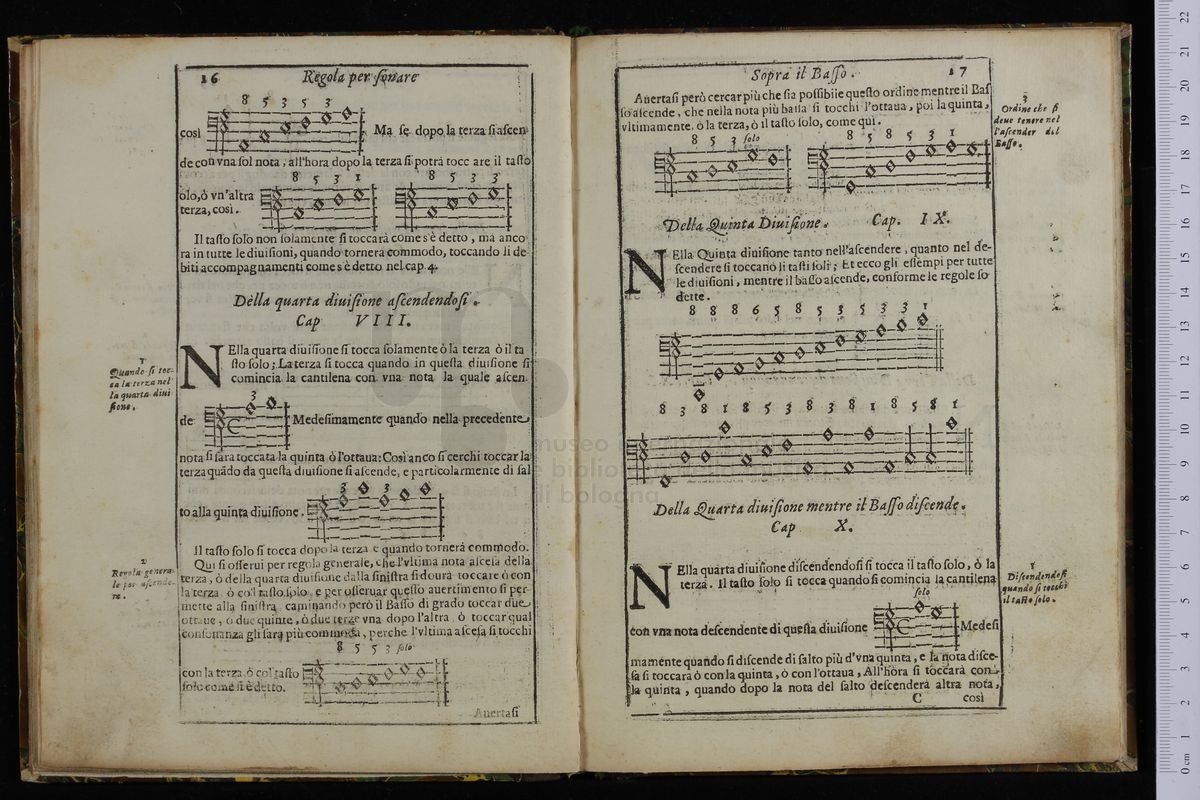 16 Regola per ſonare
8 5 3 5 3
così Ma ſe dopo la terza ſi aſcen
de con vna ſol nota, all'hora dopo la terza ſi potrà tocc are il taſto
8 5 3 1 8 5 3 3
olo, ò vn'altra
terza, così.
Il taſto ſolo non ſolamente ſi toccarà come s'è detto, ma anco
ra in tutte le diuiſioni, quando tornerà commodo, toccando li de-
biti accompagnamenti come s'è detto nel cap. 4.
Della quarta diuiſione aſcendendoſi.
Cap VIII.
1
Quando ſi toc-
ca la terza nel
la quarta diui
ſione.
NElla quarta diuiſſione ſi tocca ſolamente ò la terza ò il ta
ſto ſolo; La terza ſi tocca quando in queſta diuiſione ſi
comincia la cantilena con vna nota la quale aſcen-
3
de Medeſimamente quando nella precedente
nota ſi ſarà toccata la quinta ò l'ottaua: Così anco ſi cerchi toccar la
terza quãdo da queſta diuiſione ſi aſcende, e particolarmente di ſal
3 3
to alla quinta diuiſione.
Il taſto ſolo ſi tocca dopo la terza e quando tornerà commodo.
2
Regola genera-
le per aſcende-
re.
Qui ſi oſſerui per regola generale, che l'vltima nota aſceſa della
terza, ò della quarta diuiſione dalla ſiniſtra ſi dourà toccare ò con
la terza. ò co'l taſto ſolo, e per oſſeruar queſto auertimento ſi per-
mette alla ſiniſtra caminando però il Baſſo di grado toccar due
ottaue, ò due quinte, ò due terze vna dopo l'altra ò toccar qual
conſonanza gli ſarà più commoda, perche l'vltima aſceſa ſi tocchi
8 5 5 3 ſolo
con la terza ò col taſto
ſolo come ſi è detto.
Auertaſi
Sopra il Baſſo. 17
Auertaſi però cercar più che ſia poſſibile queſto ordine mentre il Baſ
ſo aſcende, che nella nota più baſſa ſi tocchi l'ottaua, poi la quinta,
vltimamente. ò la terza, ò il taſto ſolo, come qui.
3
Ordine che ſi
deue tenere nel
l'aſcender del
Baſſo.
8 5 3 ſolo 8 5 8 5 3 1
Della Quinta Diuiſione. Cap. IX.
NElla Quinta diuiſione tanto nell'aſcendere, quanto nel de-
ſcendere ſi toccano li taſti ſoli; Et ecco gli eſſempi per tutte
le diuiſioni, mentre il baſſo aſcende, conforme le regole ſo
dette.
8 8 8 6 5 8 5 3 5 3 3 1
8 3 8 1 8 5 3 8 3 8 1 8 5 8 1
Della Quarta diuiſione mentre il Baſſo diſcende.
Cap X.
NElla quarta diuiſione diſcendendoſi ſi tocca il taſto ſolo, ò la
terza. Il taſto ſolo ſi tocca quando ſi comincia la cantilena
1
Diſcendendoſi
quando ſi tocchi
il taſto ſolo.
ſolo
con vna nota deſcendente di queſta diuiſione Medeſi
mamente quando ſi diſcende di ſalto più d'vna quinta, e la nota diſce-
ſa ſi toccarà ò con la quinta, ò con l'ottaua, All'hora ſi toccarà con
la quinta, quando dopo la nota del ſalto deſcenderà altra nota,
C così
museo
e biblio
di bologna
0 cm 1 2 3 4 5 6 7 8 9 10 11 12 13 14 15 16 17 18 19 20 21 22